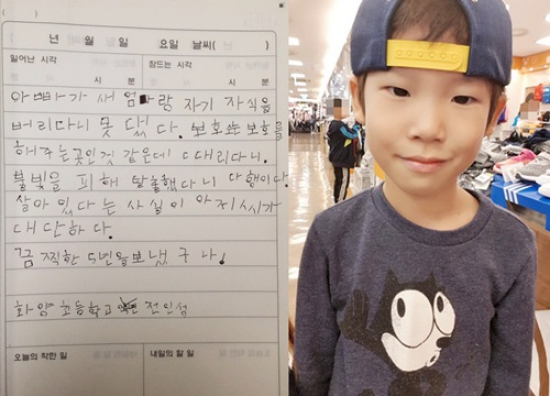 년 월 일 요일 날씨( )
일어난 시각 잠드는 시각
시 분 시 분
아빠가 새 엄마랑 자기 자식을
버리다니 못 됐다. 보호소는 보호를
해주는곳인것 같은데 때리다니.
불빛을 피해 탈출했다니 다행이다.
살아 있다는 사실이 아저씨가
대단하다.
끔찍한 5년을보냈구나.
화양초등학교 전인성
오늘의 착한 일 내일의 할 일